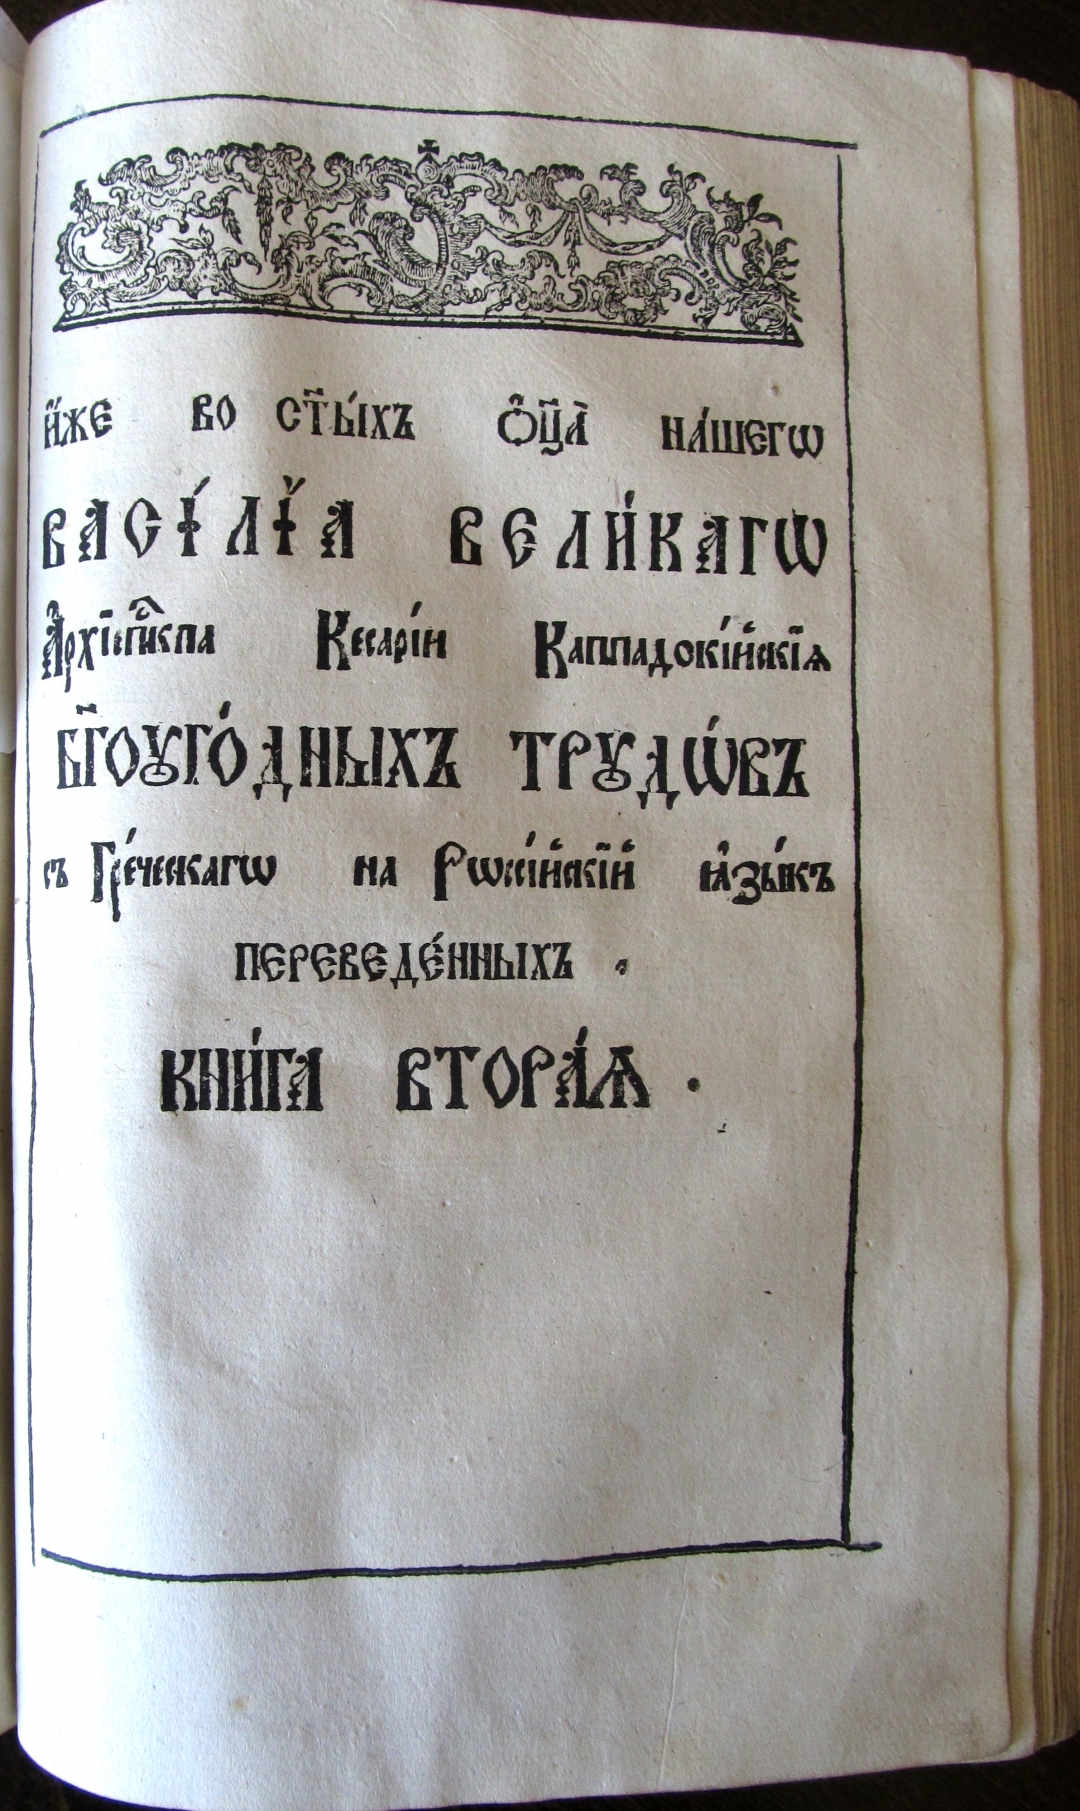 И҆́же во ст҃ы́хъ ѻ҆ц҃а̀ на́шегѡ
васі́лїа вели́кагѡ
А҆рхїепⷭ҇кпа Кесарі́и Каппадокі́йскїѧ
бг҃оꙋго́дныхъ трꙋдѡ́въ
съ Гре́ческагѡ на Рѡссі́йскїй ꙗ҆зы́къ
переведе́нныхъ .
кни́га втора́ѧ .